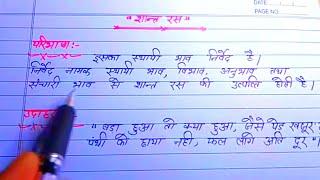 DATE
PAGE NO.
"शान्त रस"
परिभाषा:-
इसका स्थायी भाव निर्वेद है।
निर्वेद नामक स्थायी भाव, विभाव, अनुभाव तथा
संचारी भाव से शान्त रस की उत्पत्ति होती है।
" बड़ा हुआ तो क्या हुआ, जैसे पेड़ खजूर
पंथी को छाया नहीं, फल लागे अति दूर"।